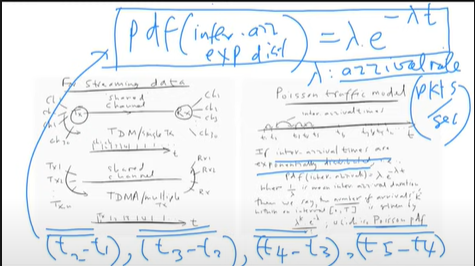 pdf(inter.arr
exp dist) = λ.e^-λt
λ: arrival rate
(pkts/
sec)
For Streaming data
shared
channel
Ch1
Tx
Rx
ch1
TDM/single Tx
t
Tx1
shared
channel
Rx1
TDMA/multiple
Rx
t
Poisson traffic model
inter.arrival times
t
If inter arrival times are
exponentially distributed
pdf(inter.arrival) = λ e^-λt
Where 1/λ is mean inter arrival duration
Then we say, number of arrivals 'k'
within an interval [0,T] is given by
is Poisson pdf
(t2-t1), (t3-t2), (t4-t3), (t5-t4)